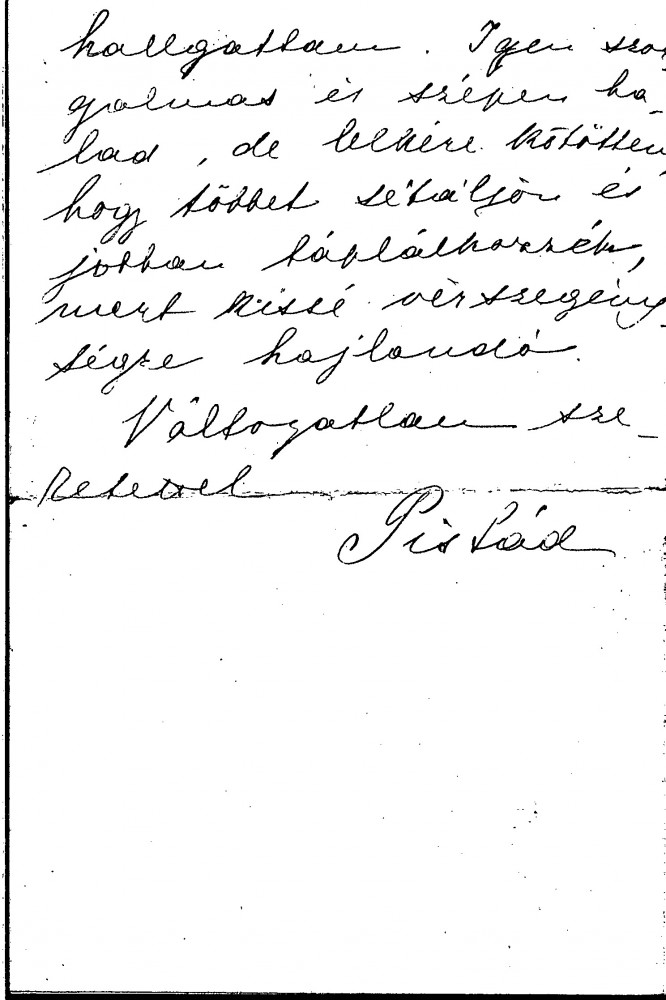 hallgattam. Igen szor-
galmas és szépen ha-
lad, de lelkére kötöttem,
hogy többet sétáljon és
jobban táplálkozzék,
mert kissé vérszegény-
ségre hajlandó.
Változatlan sze-
retettel
Pistád